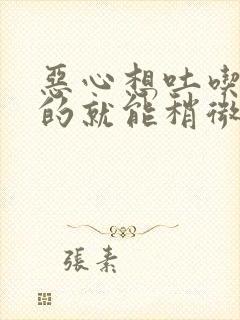 惡心想吐喫
的就能稍微
張素